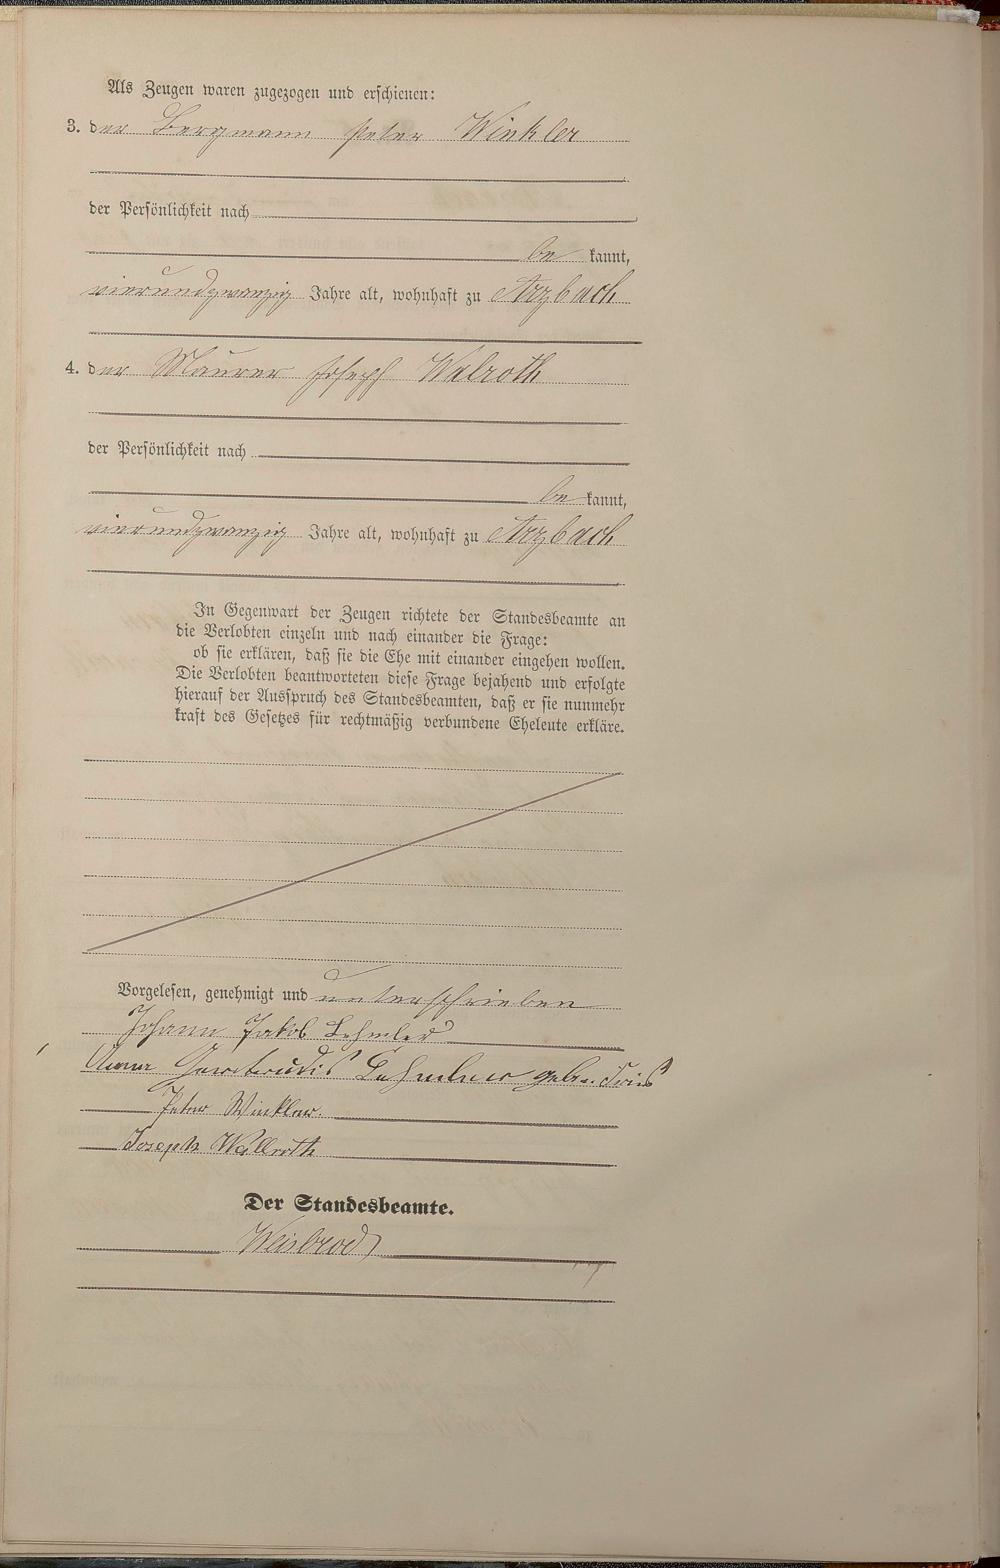 Als Zeugen waren zugezogen und erschienen:
3. der Bergmann Peter Winkler
der Persönlichkeit nach
be kannt,
vierundzwanzig Jahre alt, wohnhaft zu Arzbach
4. der Maurer Joseph Walroth
der Persönlichkeit nach
be kannt,
vierundzwanzig Jahre alt, wohnhaft zu Arzbach
In Gegenwart der Zeugen richtete der Standesbeamte an
die Verlobten einzeln und nach einander die Frage:
ob sie erklären, daß sie die Ehe mit einander eingehen wollen.
Die Verlobten beantworteten diese Frage bejahend und erfolgte
hierauf der Ausspruch des Standesbeamten, daß er sie nunmehr
kraft des Gesetzes für rechtmäßig verbundene Eheleute erkläre.
Vorgelesen, genehmigt und unterschrieben
Johann Jakob Lehmler
Anna Gertrudis Lehmler geb. Fries
Peter Winkler.
Joseph Wallroth
Der Standesbeamte.
Weisbrod